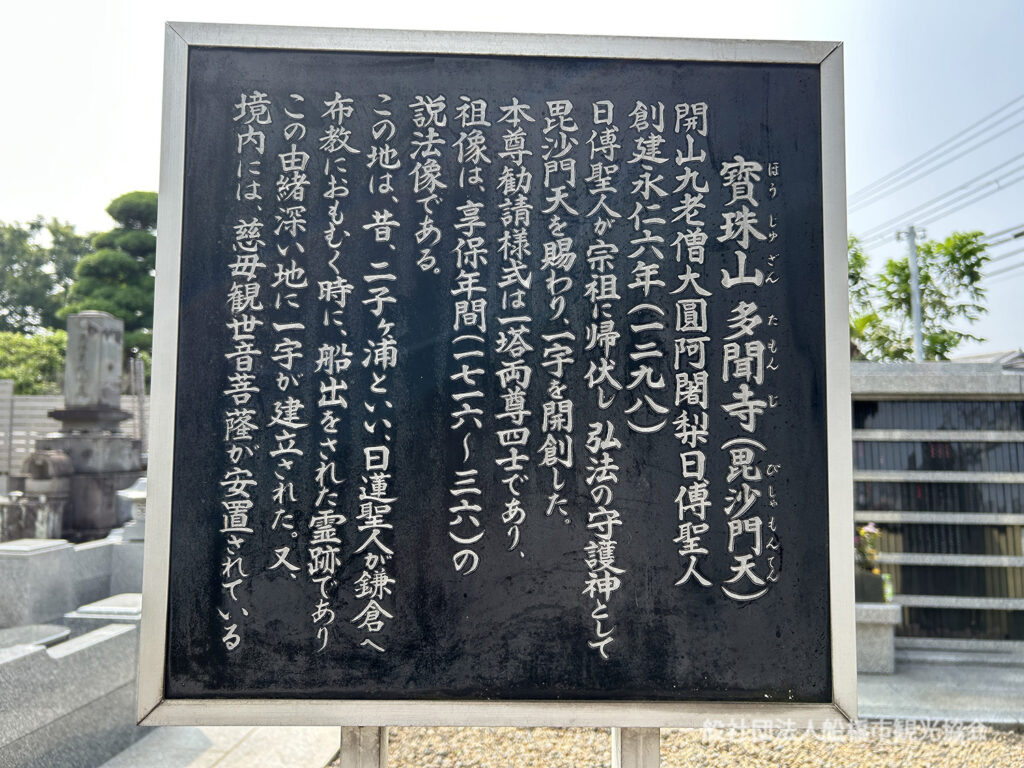 寶珠山 多聞寺(毘沙門天)
ほうじゅざん たもんじ びしゃもんてん
開山九老僧大圓阿闍梨日傳聖人
創建永仁六年(一二九八)
日傳聖人が宗祖に帰伏し 弘法の守護神として
毘沙門天を賜わり、一宇を開創した。
本尊勧請様式は一塔両尊四士であり、
祖像は、享保年間(一七一六〜三六)の
説法像である。
この地は、昔、二子ヶ浦といい、日蓮聖人が鎌倉へ
布教におもむく時に、船出をされた霊跡であり
この由緒深い地に一宇が建立された。又、
境内には、慈母観世音菩薩が安置されている
一般社団法人船橋市観光協会